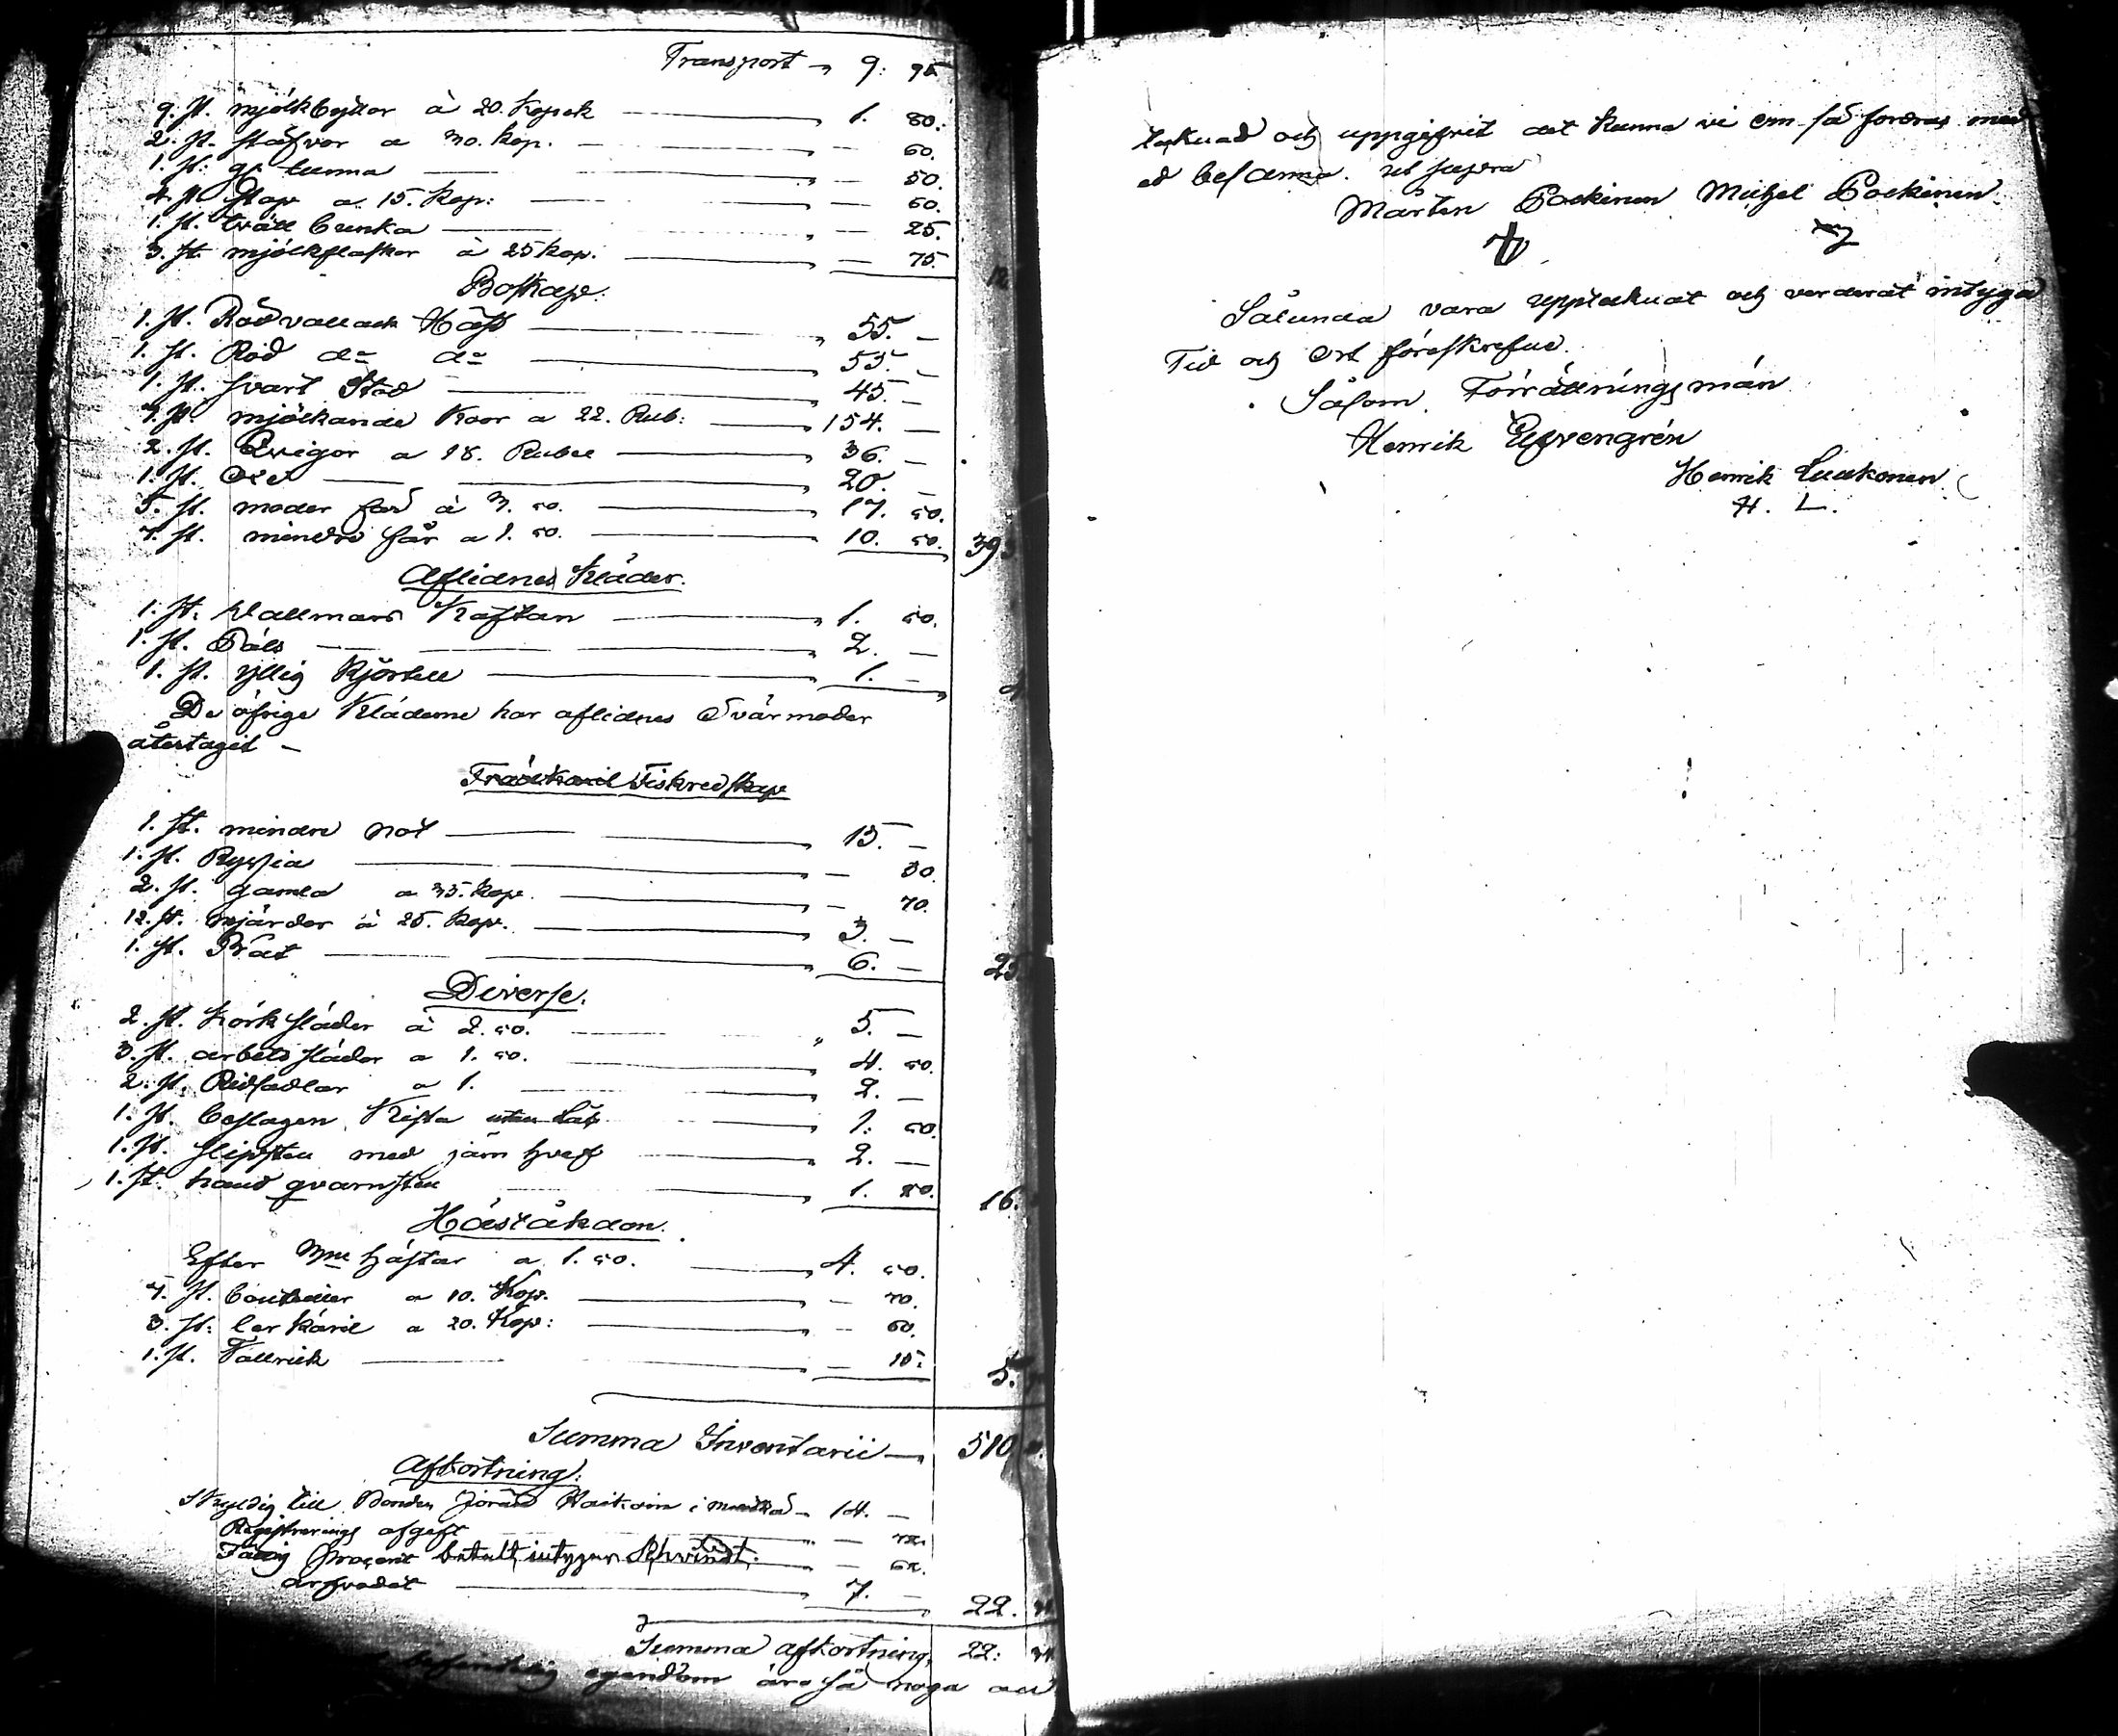 Transport 9: 95
9. st. mjölkbyttor à 20. Kopek 1. 80.
2. st. stäfvor a 30. kop. 60.
1. st. gl. tunna 50.
4 st Stop a 15. Kop: 60.
1. st. tväll bunka 25.
3. st. mjölkflaskor à 25 kop. 75. 12
Boskap.
1. st. Röd vallack Häst 55.
1. st. Röd do do 55.
1. st. svart Stod 45.
7. st. mjölkande Koor a 22. Rub: 154.
2. st. Qvigor a 18. Rubel 36.
1. st. 20.
5. st. moder får à 3. 50. 17. 50.
7. st. mindre får a 1. 50. 10. 50. 393
Aflidnes Kläder.
1. st. Vallmans Kaftan 1. 50.
1. st. Päls 2.
1. st. yllig Kjortell 1.
De öfrige Kläderne har aflidnes Svärmoder
återtagit
Fiskredskap
1. st. mindre Not 15.
1. st. Ryssia 50
2. st. gamla a 35. kop. 70.
12. st. mjärdor à 25. kop. 3.
1. st. Båt 6. 25
Diverse.
2. st. Körk släder à 2. 50. 5.
3. st. arbets släder a 1. 50. 4. 50.
2. st. Ridsadlar a 1. 2.
1. st. beslagen Kista utan Lås 1: 50.
1. st. slipsten med järn hvef 2.
1. st. hand qvarnsten 1. 50. 16.
Häståkdon.
Efter hästar a 1. 50. 4. 50.
7. st. bouteiller a 10. Kop. 70.
3. st: lerkäril a 20. Kop: 60.
1. st. Tallrick 10. 5.
Summa Inventarii 510
Afkortning:
Skyldig till Bonden Jöran i 14.
Registrerings afgift
Fattig procent betalt, intygar Schvindt.
arfvodet 7. 22.
Summa afkortning, 22:
egendom är så noga
tecknad och uppgifvit det kunna vi om så fordras med
ed besanna. ut supra
Mårten Pockinen Michel Pockinen
Sålunda vara upptecknat och verderat intyga
Tid och Ort föreskrefne.
Såsom Förrättningsmän
Henrik
Henrik Luukonen
H. L.